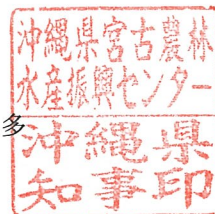 沖縄県宮古農林
水産振興センター
多
沖縄県
知事印